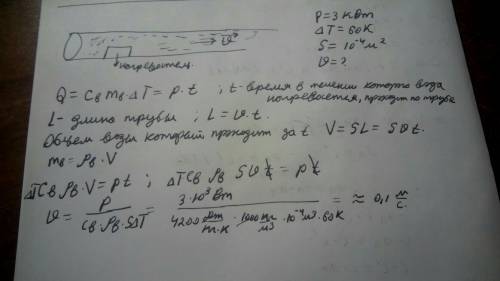 P=3 кВт
ΔT=60K
S=10⁻⁴ м²
υ=?
υ
нагреватель
Q = Cв mв ΔT = P·t ; t - время в течении которого вода
нагревается, проходит по трубе
L - длина трубы ; L = υ·t.
Объем воды который проходит за t V = SL = Sυt.
mв = ρв·V
ΔT Cв ρв·V = Pt ; ΔT Cв ρв Sυt = Pt
υ = P / (Cв·ρв·SΔT) = 3·10³ Вт / (4200 · 1000 кг/м³ · 10⁻⁴ м² · 60K) = ≈ 0,1 м/с.